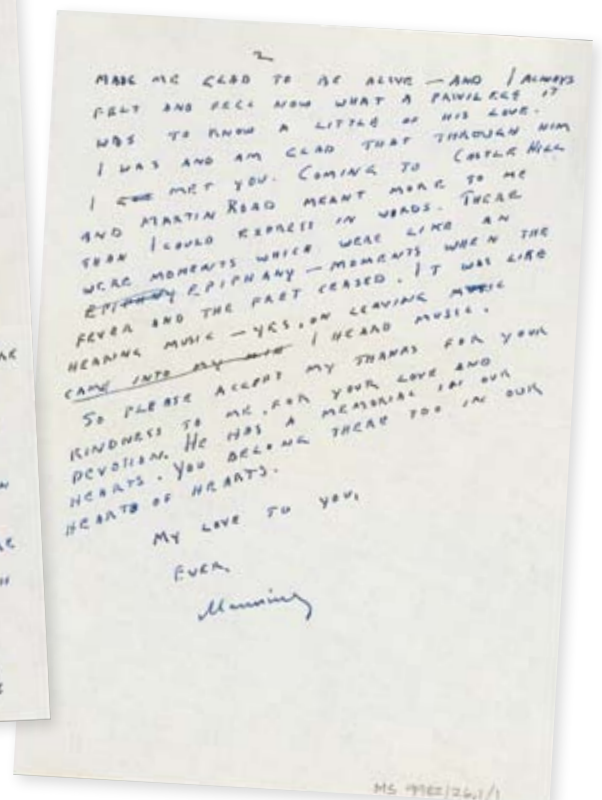 2
MADE ME GLAD TO BE ALIVE — AND I ALWAYS
FELT AND FEEL NOW WHAT A PRIVILEGE IT
WAS TO KNOW A LITTLE OF HIS LOVE.
I WAS AND AM GLAD THAT THROUGH HIM
I MET YOU. COMING TO CASTLE HILL
AND MARTIN ROAD MEANT MORE TO ME
THAN I COULD EXPRESS IN WORDS. THERE
WERE MOMENTS WHICH WERE LIKE AN
EPIPHANY EPIPHANY — MOMENTS WHEN THE
FEVER AND THE FRET CEASED. IT WAS LIKE
HEARING MUSIC — YES, ON LEAVING MUSIC
CAME INTO MY I HEARD MUSIC.
SO PLEASE ACCEPT MY THANKS FOR YOUR
KINDNESS TO ME, FOR YOUR LOVE AND
DEVOTION. HE HAS A MEMORIAL IN OUR
HEARTS. YOU BELONG THERE TOO IN OUR
HEARTS OF HEARTS.
MY LOVE TO YOU,
EVER,
Manning